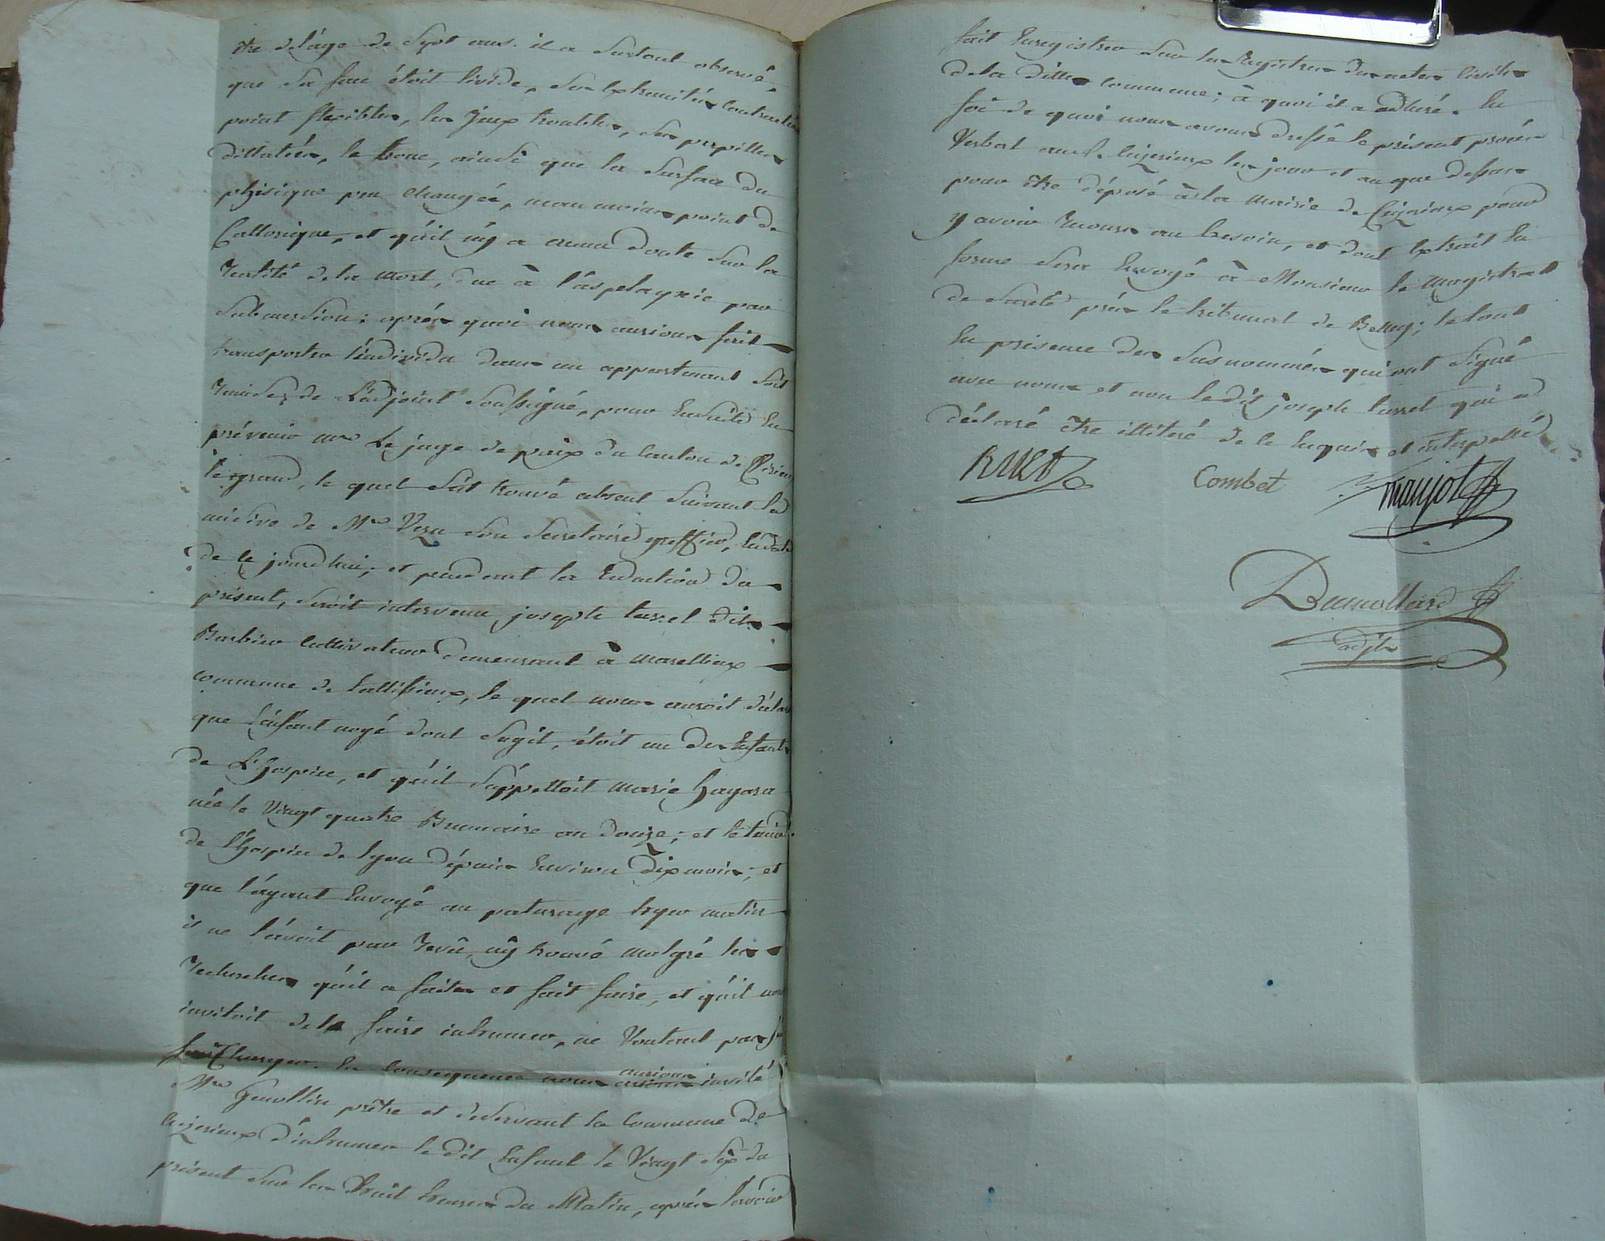 être de l'âge de Sept ans. il a Surtout observé
que Sa face étoit livide, Ses Extremités contractées
point flexibles, les yeux troubles, Ses pupilles
dillatées, le tronc, ainsi que la Surface du
phisique peu changée, néanmoins point de
Callorique, et qu'il n'y a aucun doute Sur la
réalité de la mort, due à l'asphixie par
Submersion; après quoi nous aurions fait
transporter l'individu dans un appartement
de L'adjoint Soussigné, pour Ensuite En
prévenir Mr Le juge de paix du Canton de
le grand, le quel S'est trouvé absent Suivant la
missive de Mr Son Secretaire greffier,
de ce jourd'hui; et pendant la rédaction du
présent, Seroit intervenu joseph dit
Barbier cultivateur demeurant à Marellieux
commune de le quel nous auroit déclaré
que l'enfant noyé dont S'agit, étoit un des Enfants
de L'hospice, et qu'il S'appelloit marie
née le Vingt quatre Brumaire an douze; et le tenoit
de l'hospice de lyon dépuis Environ dix mois; et
que l'ayant Envoyé au paturage hyer matin
il ne l'avoit pas revû, ny trouvé malgré les
recherches qu'il a faites et fait faire, et qu'il nous
invitoit de la faire inhumer, ne Voulant pas S'en
Charger. En Conséquence nous aurions invité
Mr Genollin prêtre et deservant la commune de
d'inhumer le dit Enfant le Vingt Six du
présent Sur les huit heures du Matin, après l'avoir
fait Enregistrer Sur les Registres des actes Civils
de la ditte commune; à quoi il a adhéré. En
foi de quoi nous avons dressé le présent procès
Verbal les jour et an que dessus
pour être déposé à la Mairie de pour
y avoir recours au besoin, et dont Extrait En
forme Sera Envoyé à Monsieur le Magistrat
de Sureté près le tribunal de Belley; le tout
En présence des Susnommés qui ont Signé
avec nous et non le dit joseph qui a
déclaré être illitéré de ce Enquis et interpellé.
Ruet Combet Manjot
Dumollard
adjt